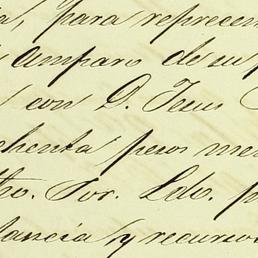 , para represen
amparo de su p
con D. Jesus
chenta pesos me
ho. Sor. Ldo. p
tancia y recurso